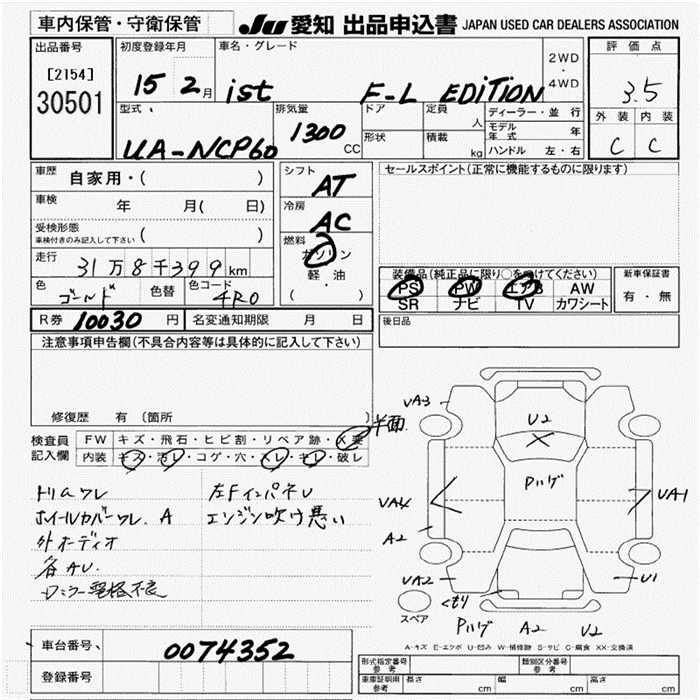 車内保管・守衛保管
JU 愛知 出品申込書 JAPAN USED CAR DEALERS ASSOCIATION
出品番号
[2154]
30501
初度登録年月
15 2月
車名・グレード
ist F-L EDITION
2WD
・
4WD
評価点
3.5
外装 内装
C C
型式
UA-NCP60
排気量
1300 CC
ドア
形状
定員 人
積載 kg
ディーラー・並行
モデル年式 年
ハンドル 左・右
車歴 自家用・( )
車検 年 月( 日)
受検形態
車検付きのみ記入して下さい ( )
走行 31万8千399km
色 ゴールド 色替 色コード 4R0
シフト AT
冷房 AC
燃料
ガソリン
軽・油
( )
セールスポイント(正常に機能するものに限ります)
装備品(純正品に限り○をつけてください)
PS PW エアB AW
SR ナビ TV カワシート
新車保証書
有・無
後日品
R券 10030 円 名変通知期限 月 日
注意事項申告欄(不具合内容等は具体的に記入して下さい)
修復歴 有 (箇所 )
検査員
記入欄
FW キズ・飛石・ヒビ割・リペア跡・X要
内装 キズ・汚レ・コゲ・穴・スレ・キレ・破レ
トリムワレ
ホイールカバーワレ. A
外オーディオ
各AU.
左FインパネU
エンジン吹け悪い
VA3
U2
Pハゲ
VA4
VA1
A2
VA2
U1
くもり
Pハゲ A2 U2
スペア
A-キズ E-エクボ U-凹み W-補修跡 S-サビ C-腐食 XX-交換済
車台番号 0074352
登録番号
形式指定番号
参考
類別区分番号
参考
車庫証明用
参考
長さ cm 幅 cm 高さ cm